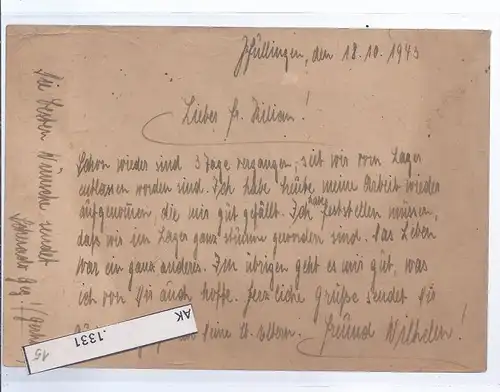 Pfullingen, den 18.10.1943
Lieber Fr. Kilian!
Schon wieder sind 3 Tage vergangen, seit wir vom Lager
entlassen worden sind. Ich habe heute meine Arbeit wieder
aufgenommen, die mir gut gefällt. Ich habe feststellen müssen,
daß wir im Lager ganz stumm geworden sind. Das Leben
war ein ganz anderes. Im übrigen geht es mir gut, was
ich von Dir auch hoffe. Herzliche Grüße sendet Dir
Deine lb. Eltern. Freund Wilhelm!
Die besten Wünsche sendet
15
AK
.1331